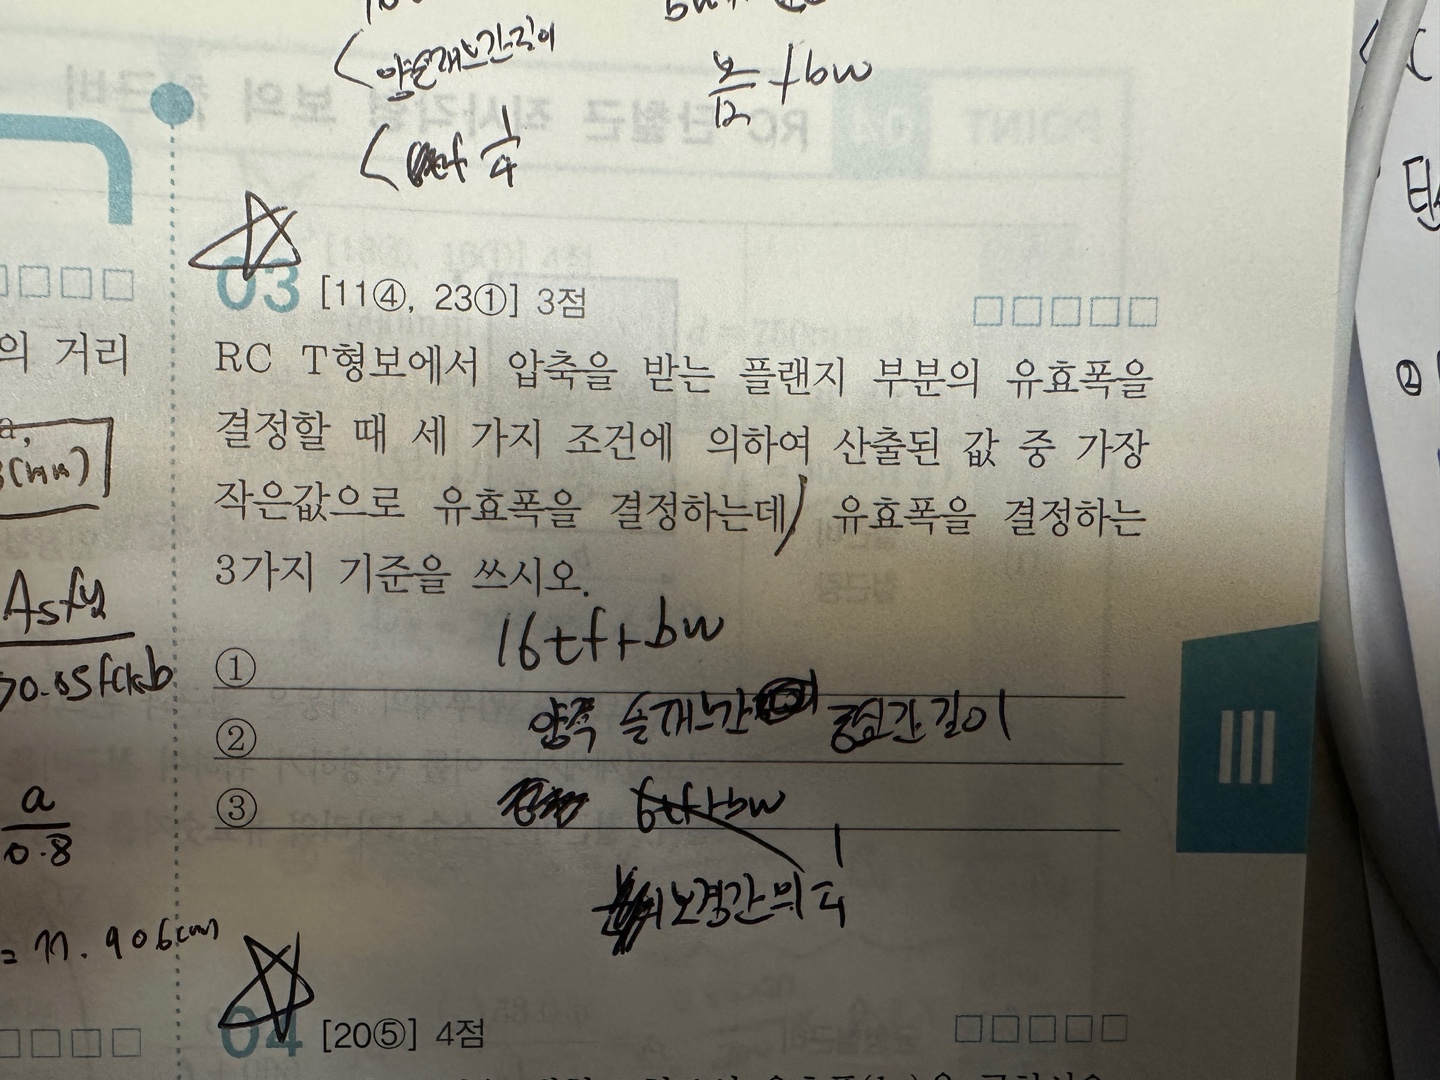 < 양쪽슬래브간길이
b/12 + bw
< 1/4
03 [11④, 23①] 3점
의 거리
RC T형보에서 압축을 받는 플랜지 부분의 유효폭을
결정할 때 세 가지 조건에 의하여 산출된 값 중 가장
작은값으로 유효폭을 결정하는데, 유효폭을 결정하는
3가지 기준을 쓰시오.
Asfy
0.85fckb
① 16tf+bw
② 양쪽 슬래브간 중심간길이
③ 6tf+bw
보경간의 1/4
a
0.8
= 77.906cm
04 [20⑤] 4점
III